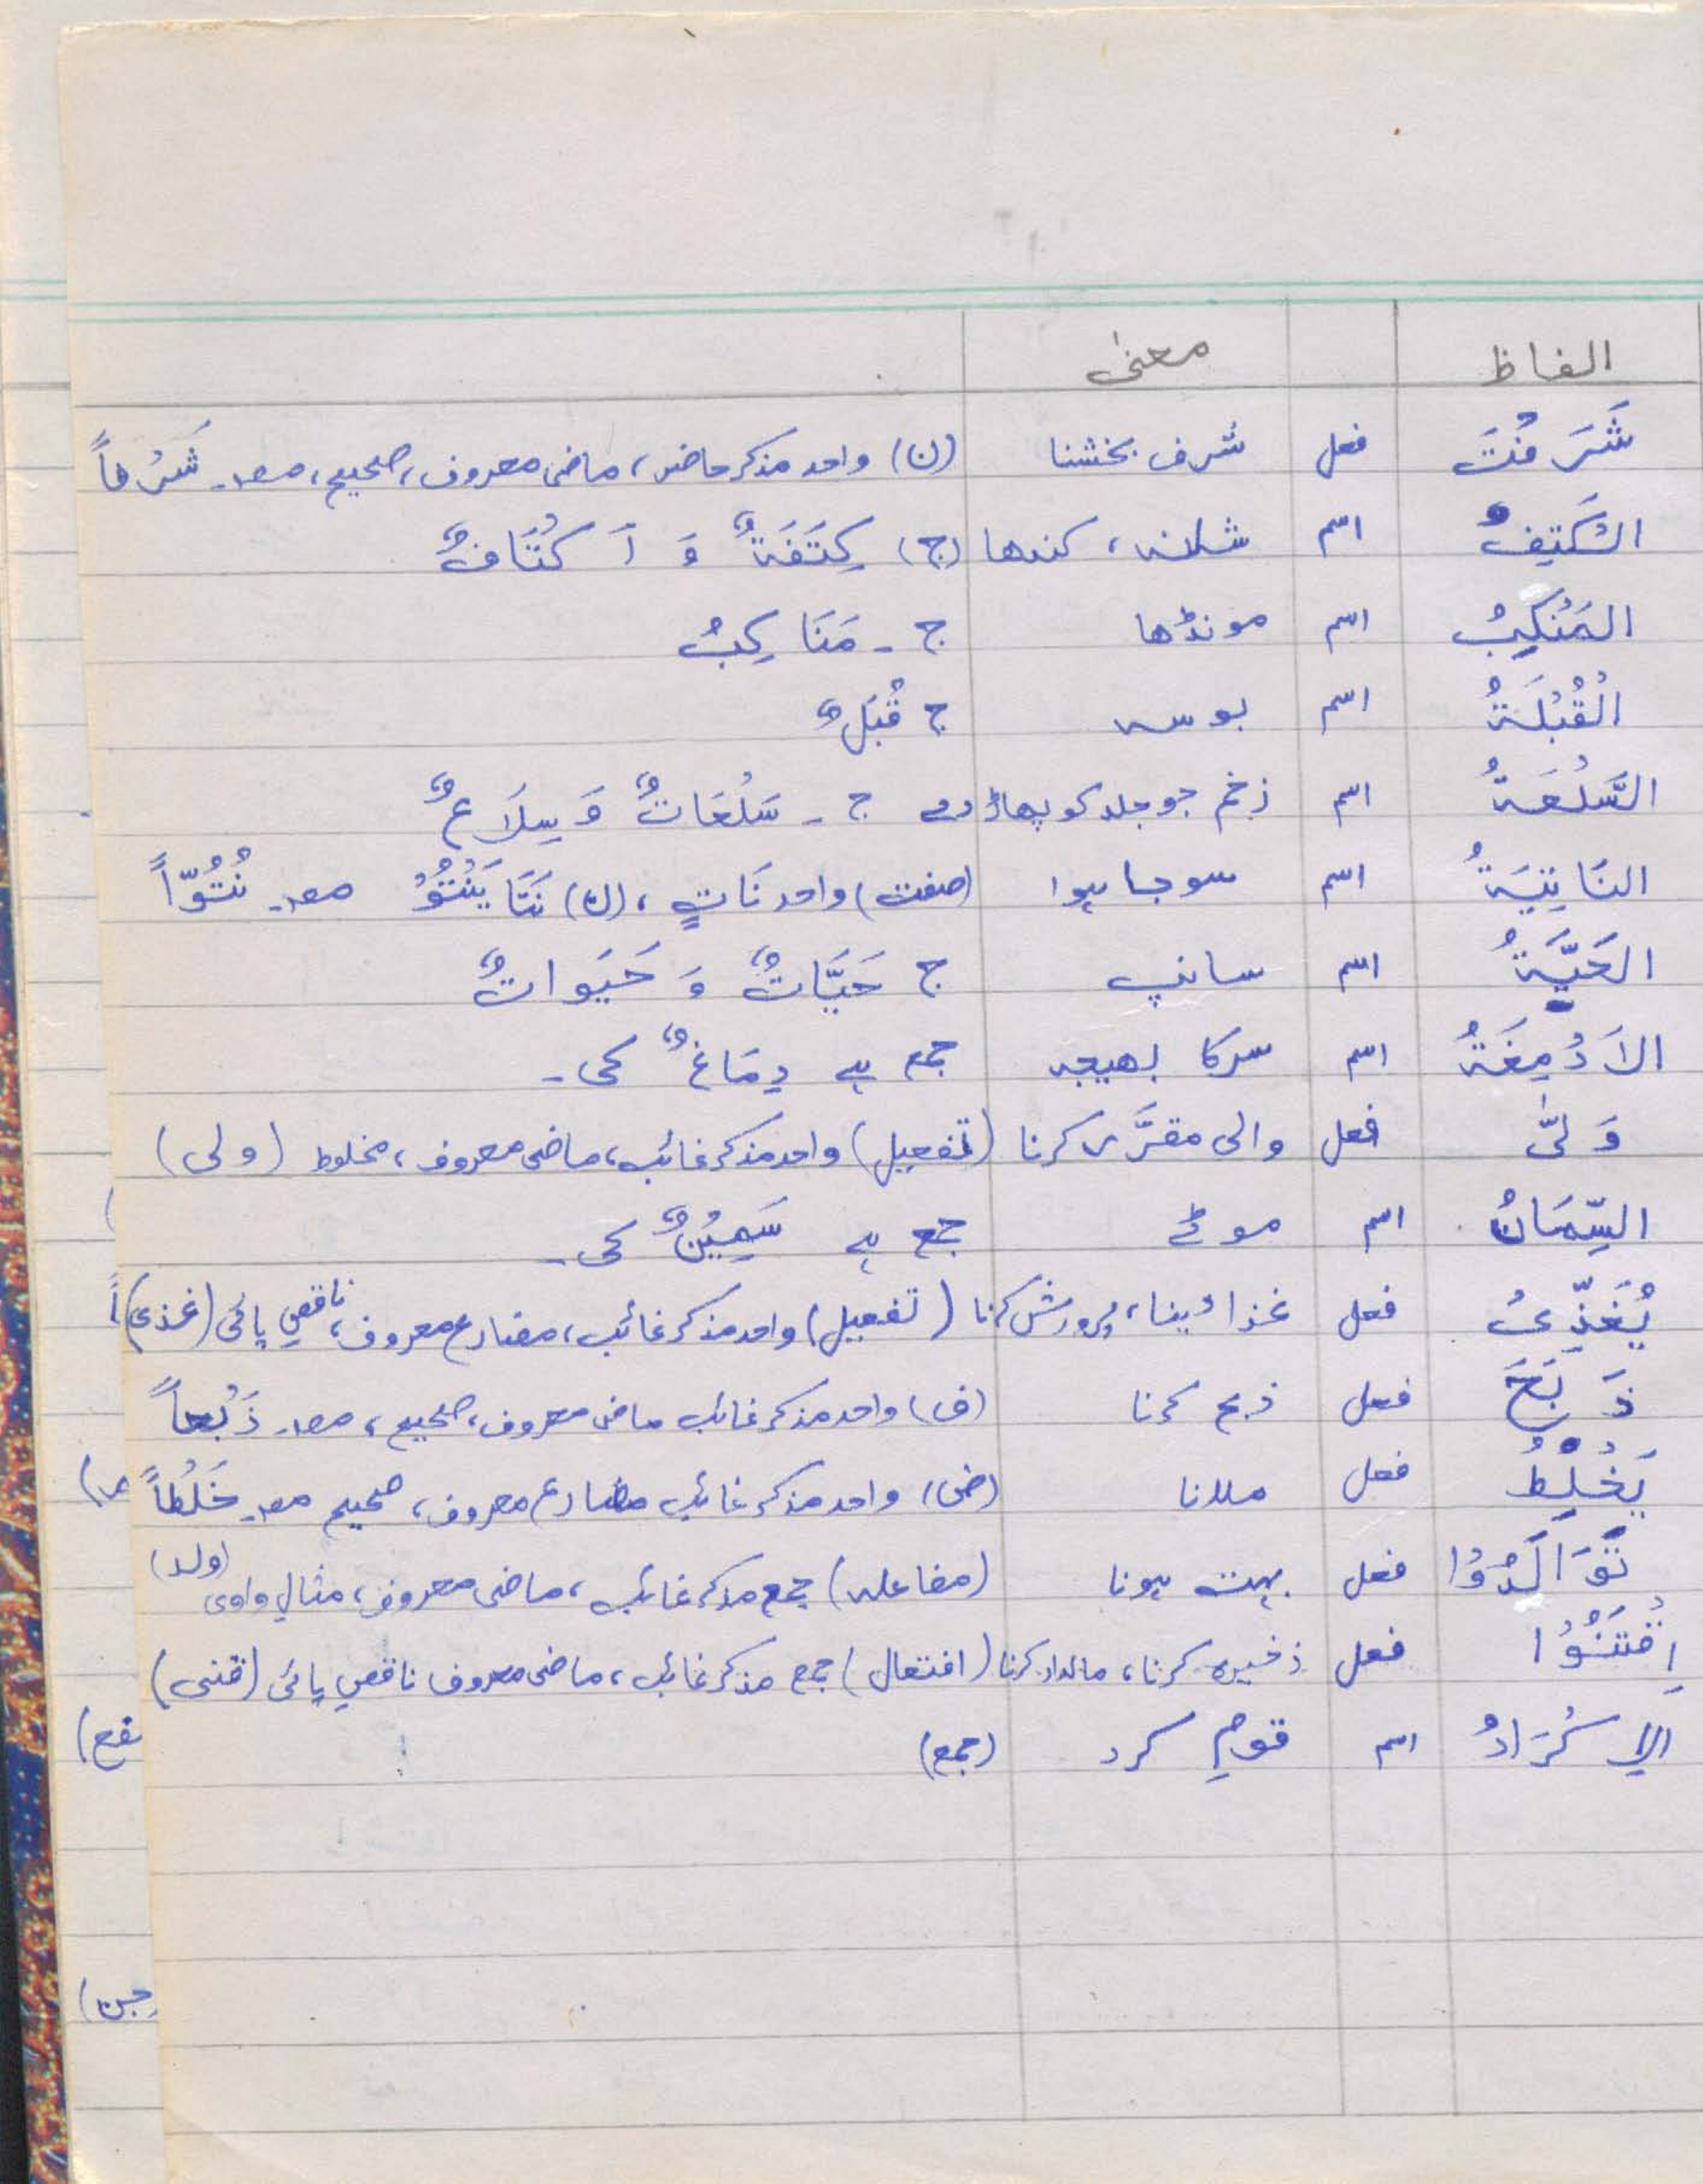 الفاظ معنیٰ
شَرَفْتَ فعل شرف بخشنا (ن) واحد مذکر حاضر، ماضی معروف، صحیح، مصدر۔ شَرْفاً
الکَتِفُ اسم شانہ، کندھا (ج) کِتَفَةٌ وَ اَکْتَافٌ
المَنْکِبُ اسم مونڈھا ج ۔ مَنَاکِبُ
الْقُبْلَةُ اسم بوسہ ج قُبَلٌ
السَّلْعَةُ اسم زخم جو جلد کو پھاڑ دے ج ۔ سَلْعَاتٌ وَ سِلَاعٌ
النَاتِیَةُ اسم سوجا ہوا (صفت) واحد نَاتٍ، (ن) نَتَا یَنْتُوْ مصدر۔ نُتُوّاً
الحَیَّةُ اسم سانپ ج حَیَّاتٌ وَ حَیَواتٌ
الاَدْمِغَةُ اسم سرکا بھیجہ جمع ہے دِمَاغٌ کی۔
وَلّٰی فعل والی مقرَّر کرنا (تفعیل) واحد مذکر غائب، ماضی معروف، مخلوط (ولی)
السِّمَانُ اسم موٹے جمع ہے سَمِیْنٌ کی۔
یُغَذِّیُ فعل غذا دینا، پرورش کرنا (تفعیل) واحد مذکر غائب، مضارع معروف، ناقصِ یائی (غذی)
ذَبَحَ فعل ذبح کرنا (ف) واحد مذکر غائب ماضی معروف، صحیح، مصدر ذَبْحاً
یَخْلِطُ فعل ملانا (ض) واحد مذکر غائب مضارع معروف، صحیح مصدر خَلْطاً
تَوَالَدُوْا فعل بہت ہونا (مفاعلہ) جمع مذکر غائب، ماضی معروف، مثالِ واوی (ولد)
اِقْتَنُوْا فعل ذخیرہ کرنا، مالدار کرنا (افتعال) جمع مذکر غائب، ماضی معروف ناقصِ یائی (قنی)
الِاکْرَادُ اسم قومِ کرد (جمع)